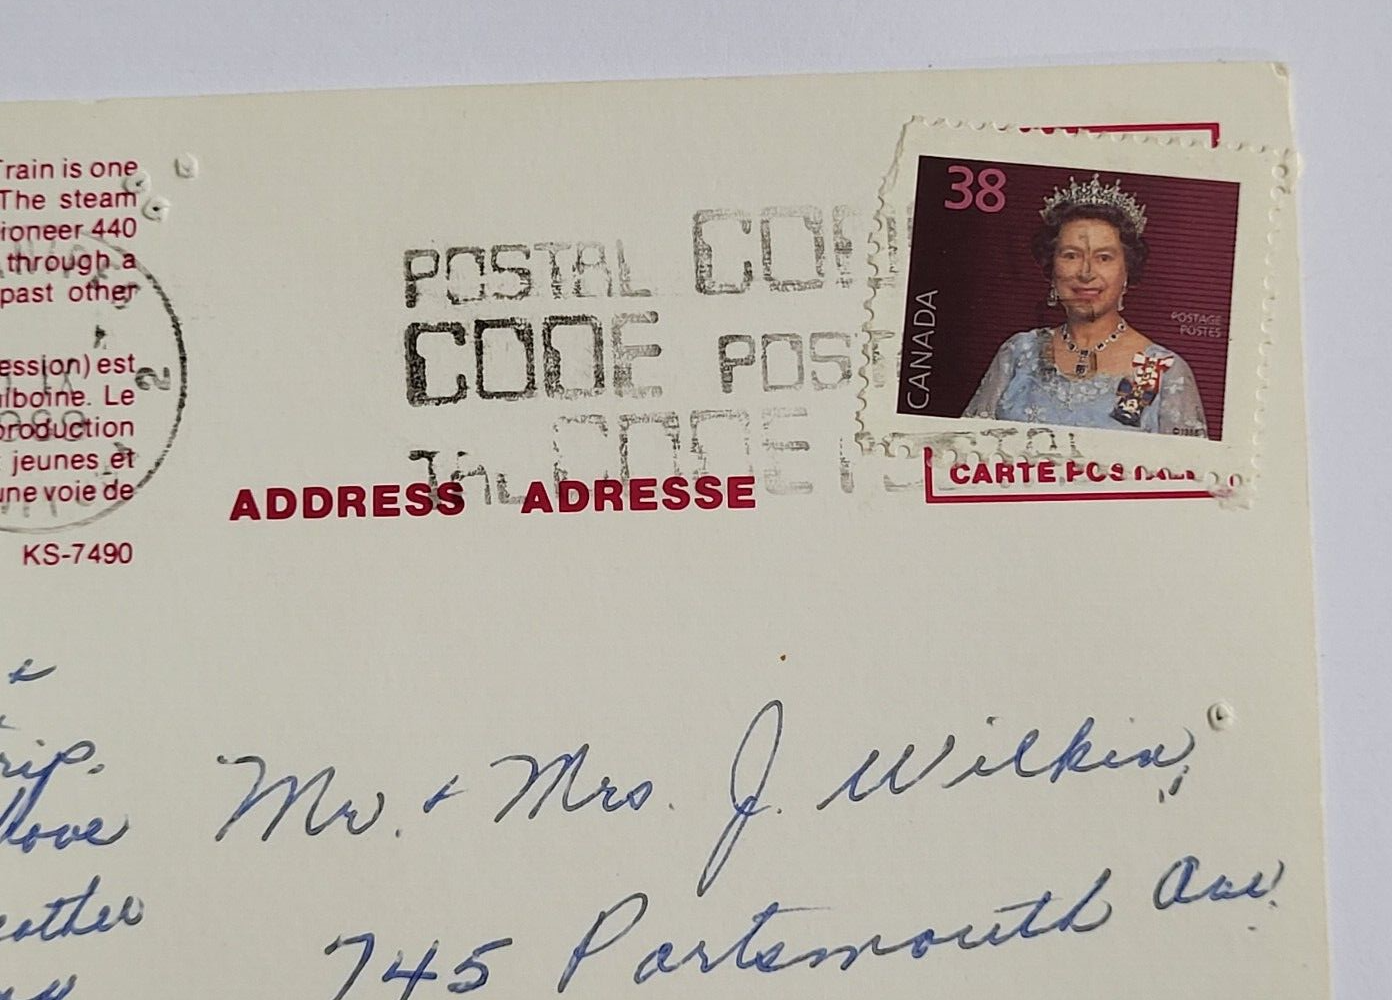 Train is one
The steam
ioneer 440
through a
past other
ession) est
iboine. Le
production
jeunes et
une voie de
KS-7490
2
POSTAL CODE
CODE POS
TAL CODE POSTAL
38
CANADA
POSTAGE
POSTES
ADDRESS ADRESSE
CARTE POSTALE
rip.
love
eather
Mr. & Mrs. J. Wilkin,
745 Portsmouth Ave.